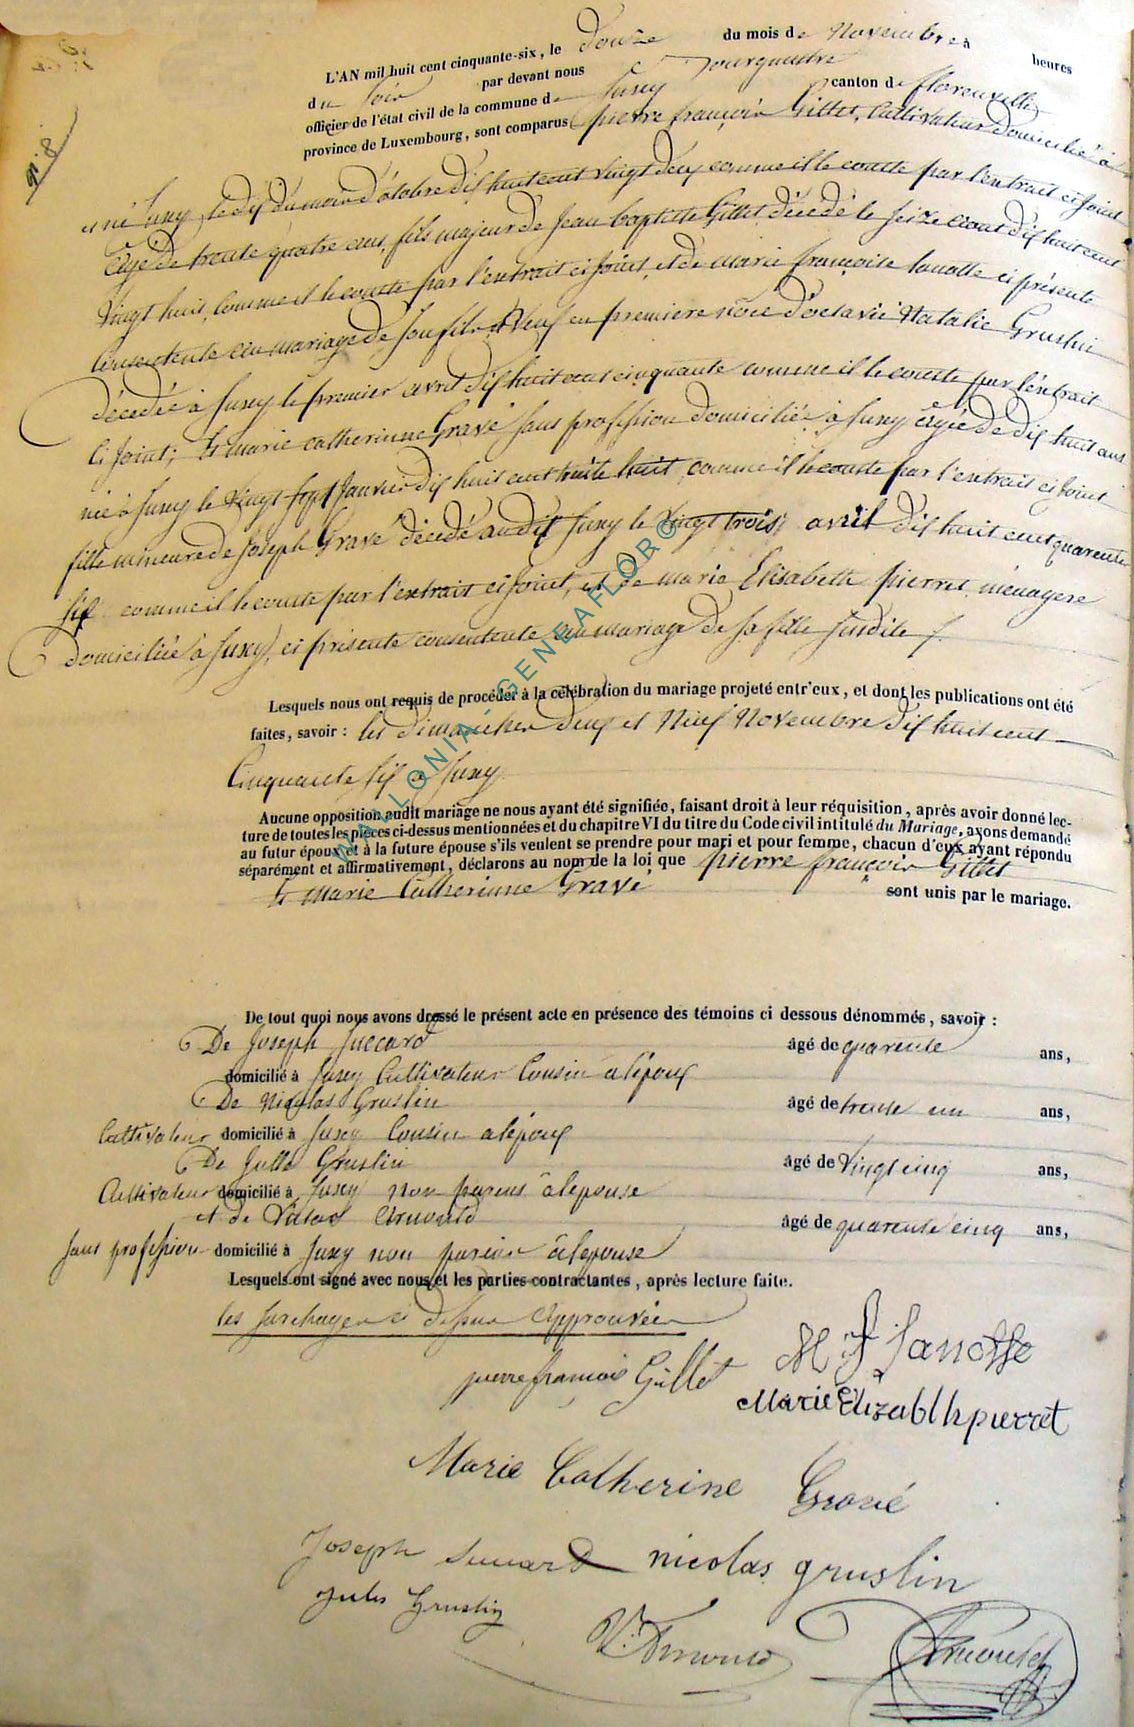 L'AN mil huit cent cinquante-six, le douze du mois de Novembre à heures
du soir par devant nous Bourguestre
officier de l'état civil de la commune de Suxy canton de florenville
province de Luxembourg, sont comparus pierre françois Gillet, Cultivateur Domicilié à
et né Suxy, le dix du mois d'otobre dix huit cent vingt deux comme il le conste par l'extrait ci joint
âgé de trente quatre ans, fils majeur de Jean baptiste Gillet décédé le seize aout dix huit cent
Vingt huit, comme il le conste par l'extrait ci joint, et de marie françoise lanotte ci présente
Consentente au mariage de son fils, Veuf en première noce d'octavie Natalie Gruslin
décedée à Suxy le premier avril dix huit cent cinquante comme il le conste par l'extrait
Ci joint; Et marie catherinne Gravé sans profession domiciliée à Suxy âgée de dix huit ans
née à Suxy le vingt sept Janvier dix huit cent trente huit, comme il le conste par l'extrait ci joint
fille mineure de Joseph Gravé décédé audit Suxy le vingt trois avril dix huit cent quarente
six comme il le conste par l'extrait ci joint, et de marie Elisabeth pierret ménagere
domiciliée à Suxy, ci présente consentente au mariage de sa fille susdite
Lesquels nous ont requis de procéder à la célébration du mariage projeté entr'eux, et dont les publications ont été
faites, savoir : les dimanches deux et Neuf Novembre dix huit cent
Cinquante six à Suxy
Aucune opposition audit mariage ne nous ayant été signifiée, faisant droit à leur réquisition, après avoir donné lec-
ture de toutes les pièces ci-dessus mentionnées et du chapitre VI du titre du Code civil intitulé du Mariage, avons demandé
au futur époux et à la future épouse s'ils veulent se prendre pour mari et pour femme, chacun d'eux ayant répondu
séparément et affirmativement, déclarons au nom de la loi que pierre françois Gillet
Et marie Catherinne Gravé sont unis par le mariage.
De tout quoi nous avons dressé le présent acte en présence des témoins ci dessous dénommés, savoir :
De Joseph Succard âgé de quarente ans,
domicilié à Suxy Cultivateur Cousin à lépoux
De Nicolas Gruslin âgé de trente un ans,
Cultivateur domicilié à Suxy Cousin a lépoux
De Julle Gruslin âgé de Vingt cinq ans,
Cultivateur domicilié à Suxy non parens à lepouse
et de Arnould âgé de quarente cinq ans,
Sans profession domicilié à Suxy non à lepouse
Lesquels ont signé avec nous et les parties contractantes, après lecture faite.
les surchages ci dessus Approuvées
pierre françois Gillet M f Lanotte
Marie Elizabth pierret
Marie Catherine Gravé
Joseph nicolas gruslin
Jules Gruslin
V. Arnould Arnould
WALLONIA - GENEAFLOR©